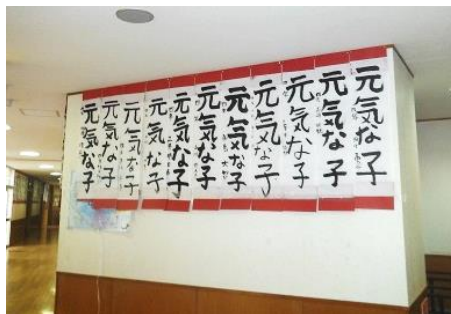 元気な子
元気な子
元気な子
元気な子
元気な子
元気な子
元気な子
元気な子
元気な子
元気な子
元気な子